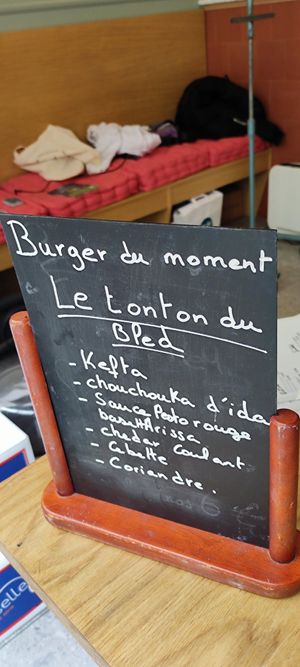 Burger du moment
Le tonton du
Bled
- Kefta
- chouchouka d'ida
- Sauce Pesto rouge
basilHArissa
- chedar coulant
- Cebette
- Coriandre.
elle